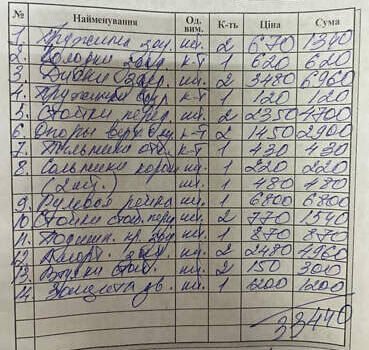 № Найменування Од. вим. К-ть Ціна Сума
1. Пружина зад. шт. 2 670 1340
2. Колодки зад. к-т 1 620 620
3. шт. 2 3480 6960
4. к-т 1 120 120
5. Стойки перед. шт. 2 2350 4700
6. Опоры к-т 2 1450 2900
7. к-т 1 430 430
8. Сальники короб шт. 1 220 220
(2шт.) шт. 1 480 480
9. Рулевая рейка шт. 1 6800 6800
10. Стойки стаб. перед шт. 2 770 1540
11. шт. 1 870 870
12. Аморт. зад. шт. 2 2480 4960
13. Втулки стаб. шт. 2 150 300
14. Защита дв. шт. 1 1200 1200
33440